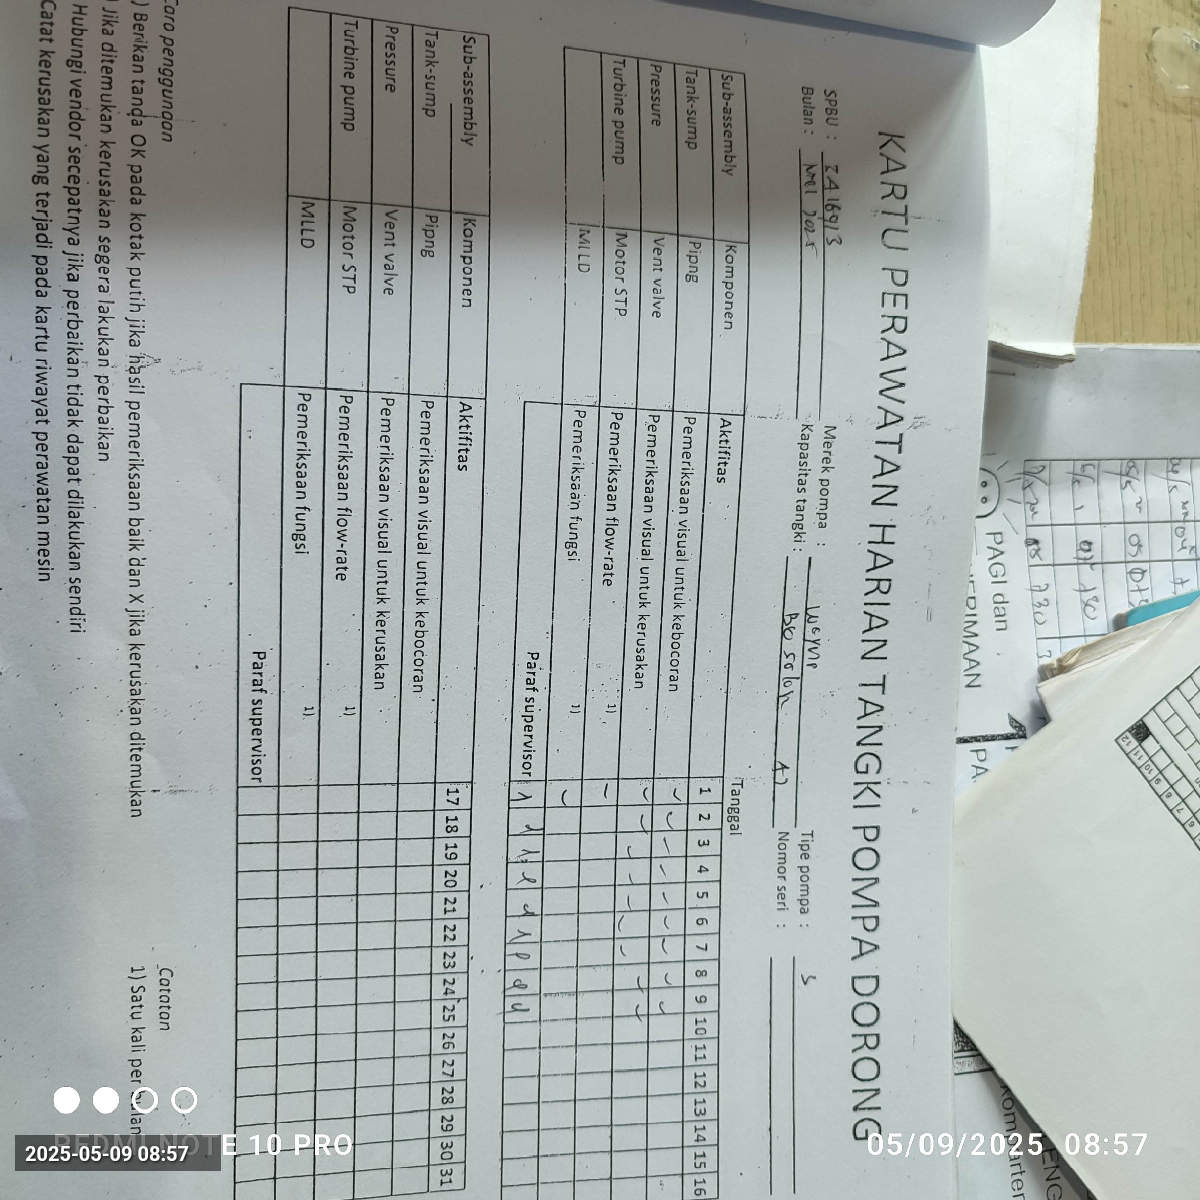 KARTU PERAWATAN HARIAN TANGKI POMPA DORONG
SPBU : Merek pompa : Wayne Tipe pompa : S
Bulan : 2025 Kapasitas tangki : Nomor seri :
Tanggal
Sub-assembly Komponen Aktifitas 1 2 3 4 5 6 7 8 9 10 11 12 13 14 15 16
Tank-sump Pipng Pemeriksaan visual untuk kebocoran ✓ ✓ ✓ ✓ ✓ ✓ ✓ ✓ ✓
Pressure Vent valve Pemeriksaan visual untuk kerusakan ✓ ✓ ✓ ✓ ✓ ✓ ✓ ✓ ✓
Turbine pump Motor STP Pemeriksaan flow-rate 1) ✓
MLLD Pemeriksaan fungsi 1) ✓
Paraf supervisor
Sub-assembly Komponen Aktifitas 17 18 19 20 21 22 23 24 25 26 27 28 29 30 31
Tank-sump Pipng Pemeriksaan visual untuk kebocoran
Pressure Vent valve Pemeriksaan visual untuk kerusakan
Turbine pump Motor STP Pemeriksaan flow-rate 1)
MLLD Pemeriksaan fungsi 1)
Paraf supervisor
Cara penggunaan
) Berikan tanda OK pada kotak putih jika hasil pemeriksaan baik dan X jika kerusakan ditemukan
) Jika ditemukan kerusakan segera lakukan perbaikan
Hubungi vendor secepatnya jika perbaikan tidak dapat dilakukan sendiri
Catat kerusakan yang terjadi pada kartu riwayat perawatan mesin
Catatan
1) Satu kali per bulan
PAGI dan
REDMI NOTE 10 PRO
2025-05-09 08:57
05/09/2025 08:57